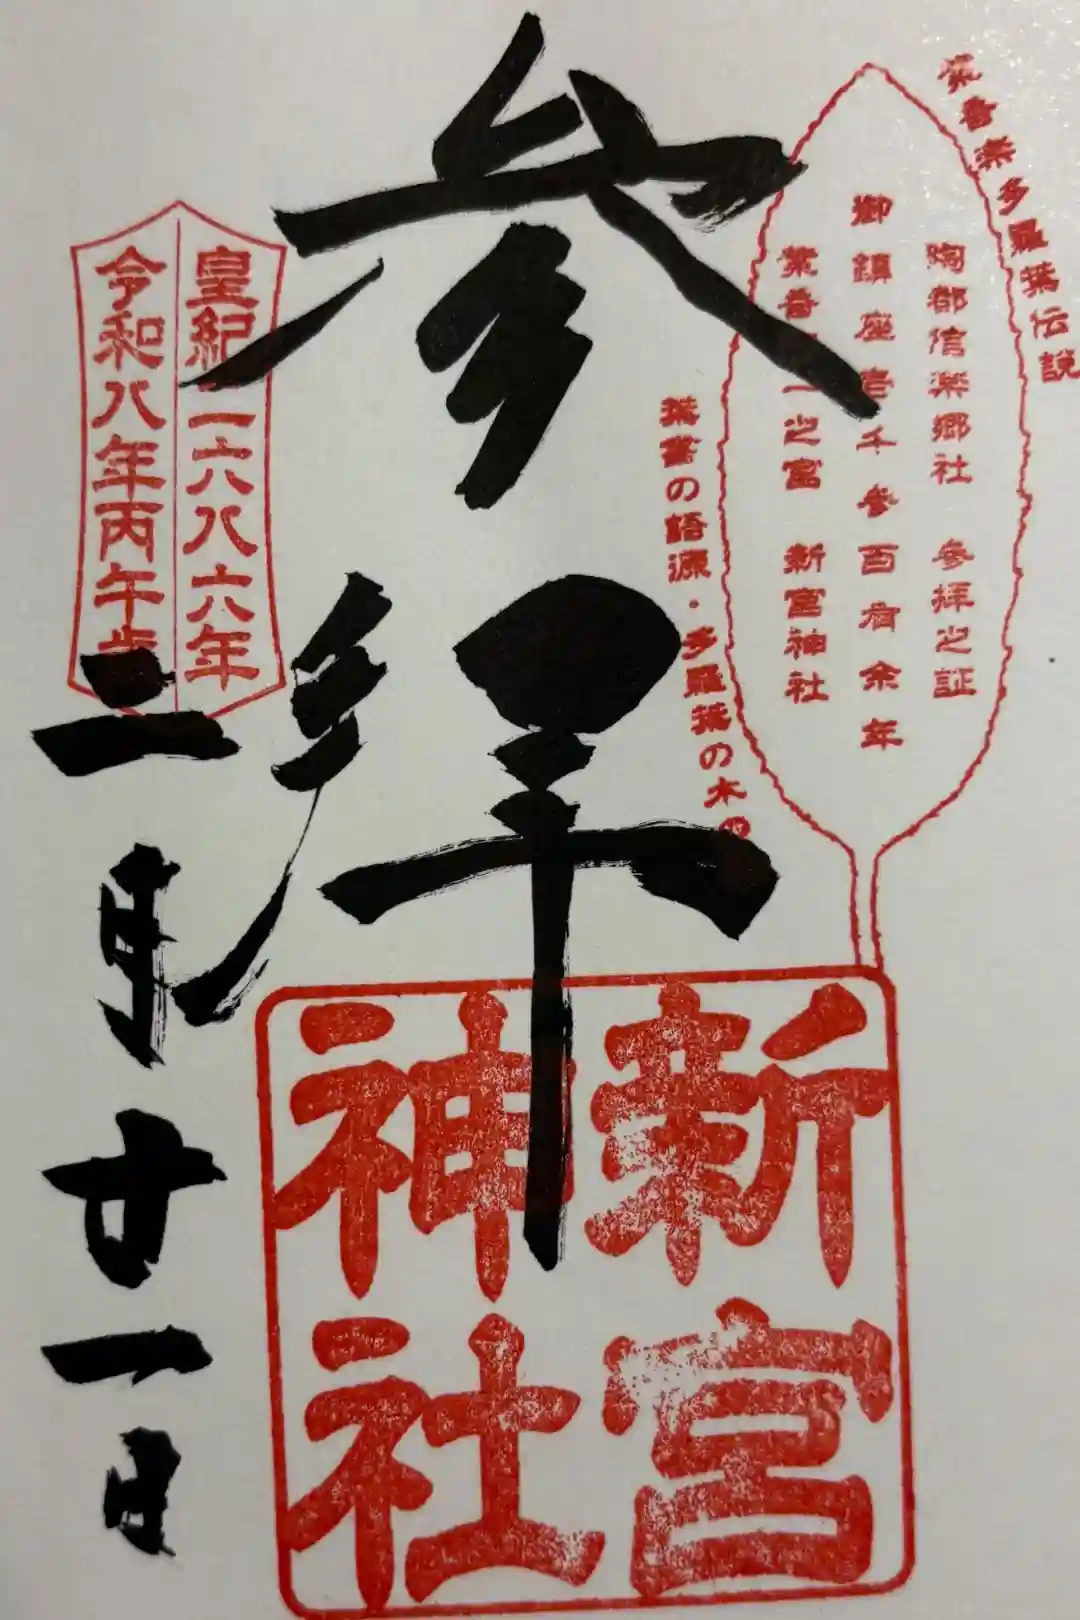 紫香楽多羅葉伝説
陶都信楽郷社 参拝之証
御鎮座壱千参百有余年
紫香 一之宮 新宮神社
葉書の語源・多羅葉の木
参拝
新宮
神社
皇紀二六八六年
令和八年丙午歳
二月廿一日